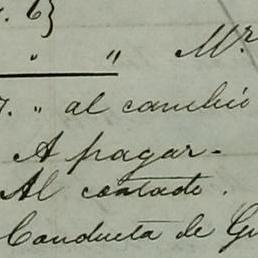 6}
" " Mr
7. " al cambió
A pagar.
Al contado.
Conducta de Gu